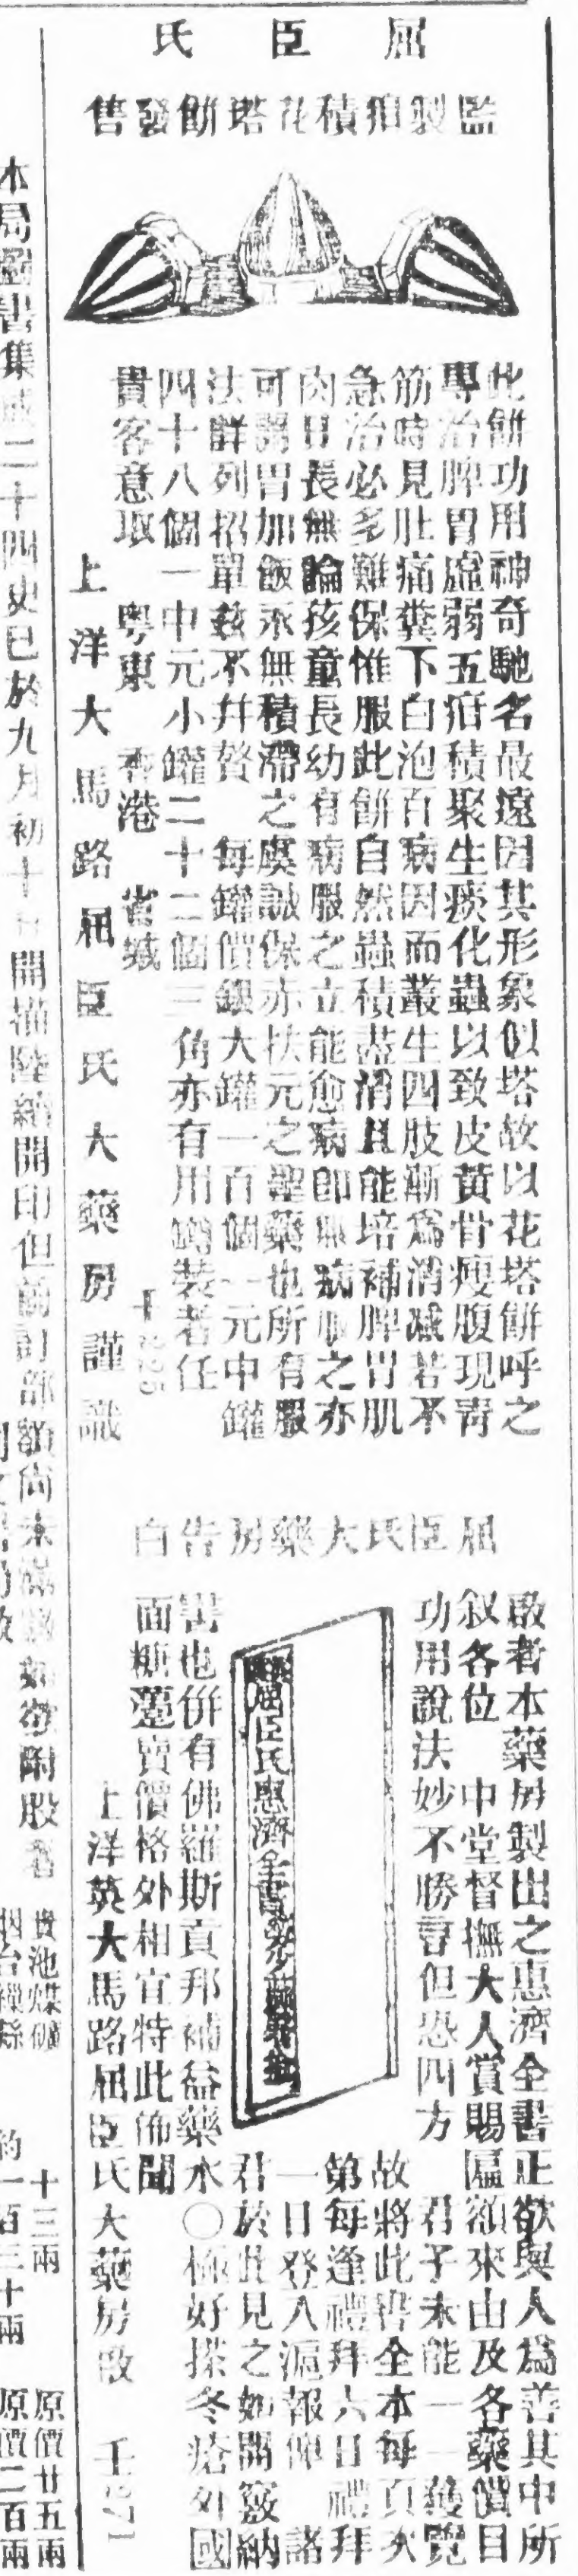 屈臣氏
監製疳積花塔餅發售
此餅功用神奇馳名最遠因其形象似塔故以花塔餅呼之
專治脾胃虛弱五疳積聚生痰化蟲以致皮黃骨瘦腹現青
筋時見肚痛糞下白泡百病因而叢生四肢漸為消滅若不
急治必多難保惟服此餅自然蟲積盡消且能培補脾胃肌
肉日長無論孩童長幼有病服之立能愈病即無病服之亦
可開胃加飯永無積滯之虞誠保赤扶元之聖藥也所有服
法詳列招單茲不幷贅 每罐價銀大罐一百個一元中罐
四十八個一中元小罐二十二個三角亦有用罇裝者任
貴客意取 粤東 香港 省城
上洋大馬路屈臣氏大藥房謹識
屈臣氏大藥房告白
啟者本藥房製出之惠濟全書正欲與人為善其中所
叙各位 中堂督撫大人賞賜匾額來由及各藥價目
功用說法妙不勝言但恐四方 君子未能一一獲覽
故將此書全本每頁次
第每逢禮拜六日禮拜
一日登入滬報俾 諸
君於此見之如開竅納
屈臣氏惠濟全書
嚳也併有佛羅斯貢邦補益藥水〇極好搽冬瘡外國
面糖躉賣價格外相宜特此佈聞
上洋英大馬路屈臣氏大藥房啟
本局圖書集成二十四史已於九月初十日開描陸續開印但前訂部額尚未滿如欲附股者
貴池煤礦
十三兩
原價廿五兩
約一百三十兩
原價二百兩